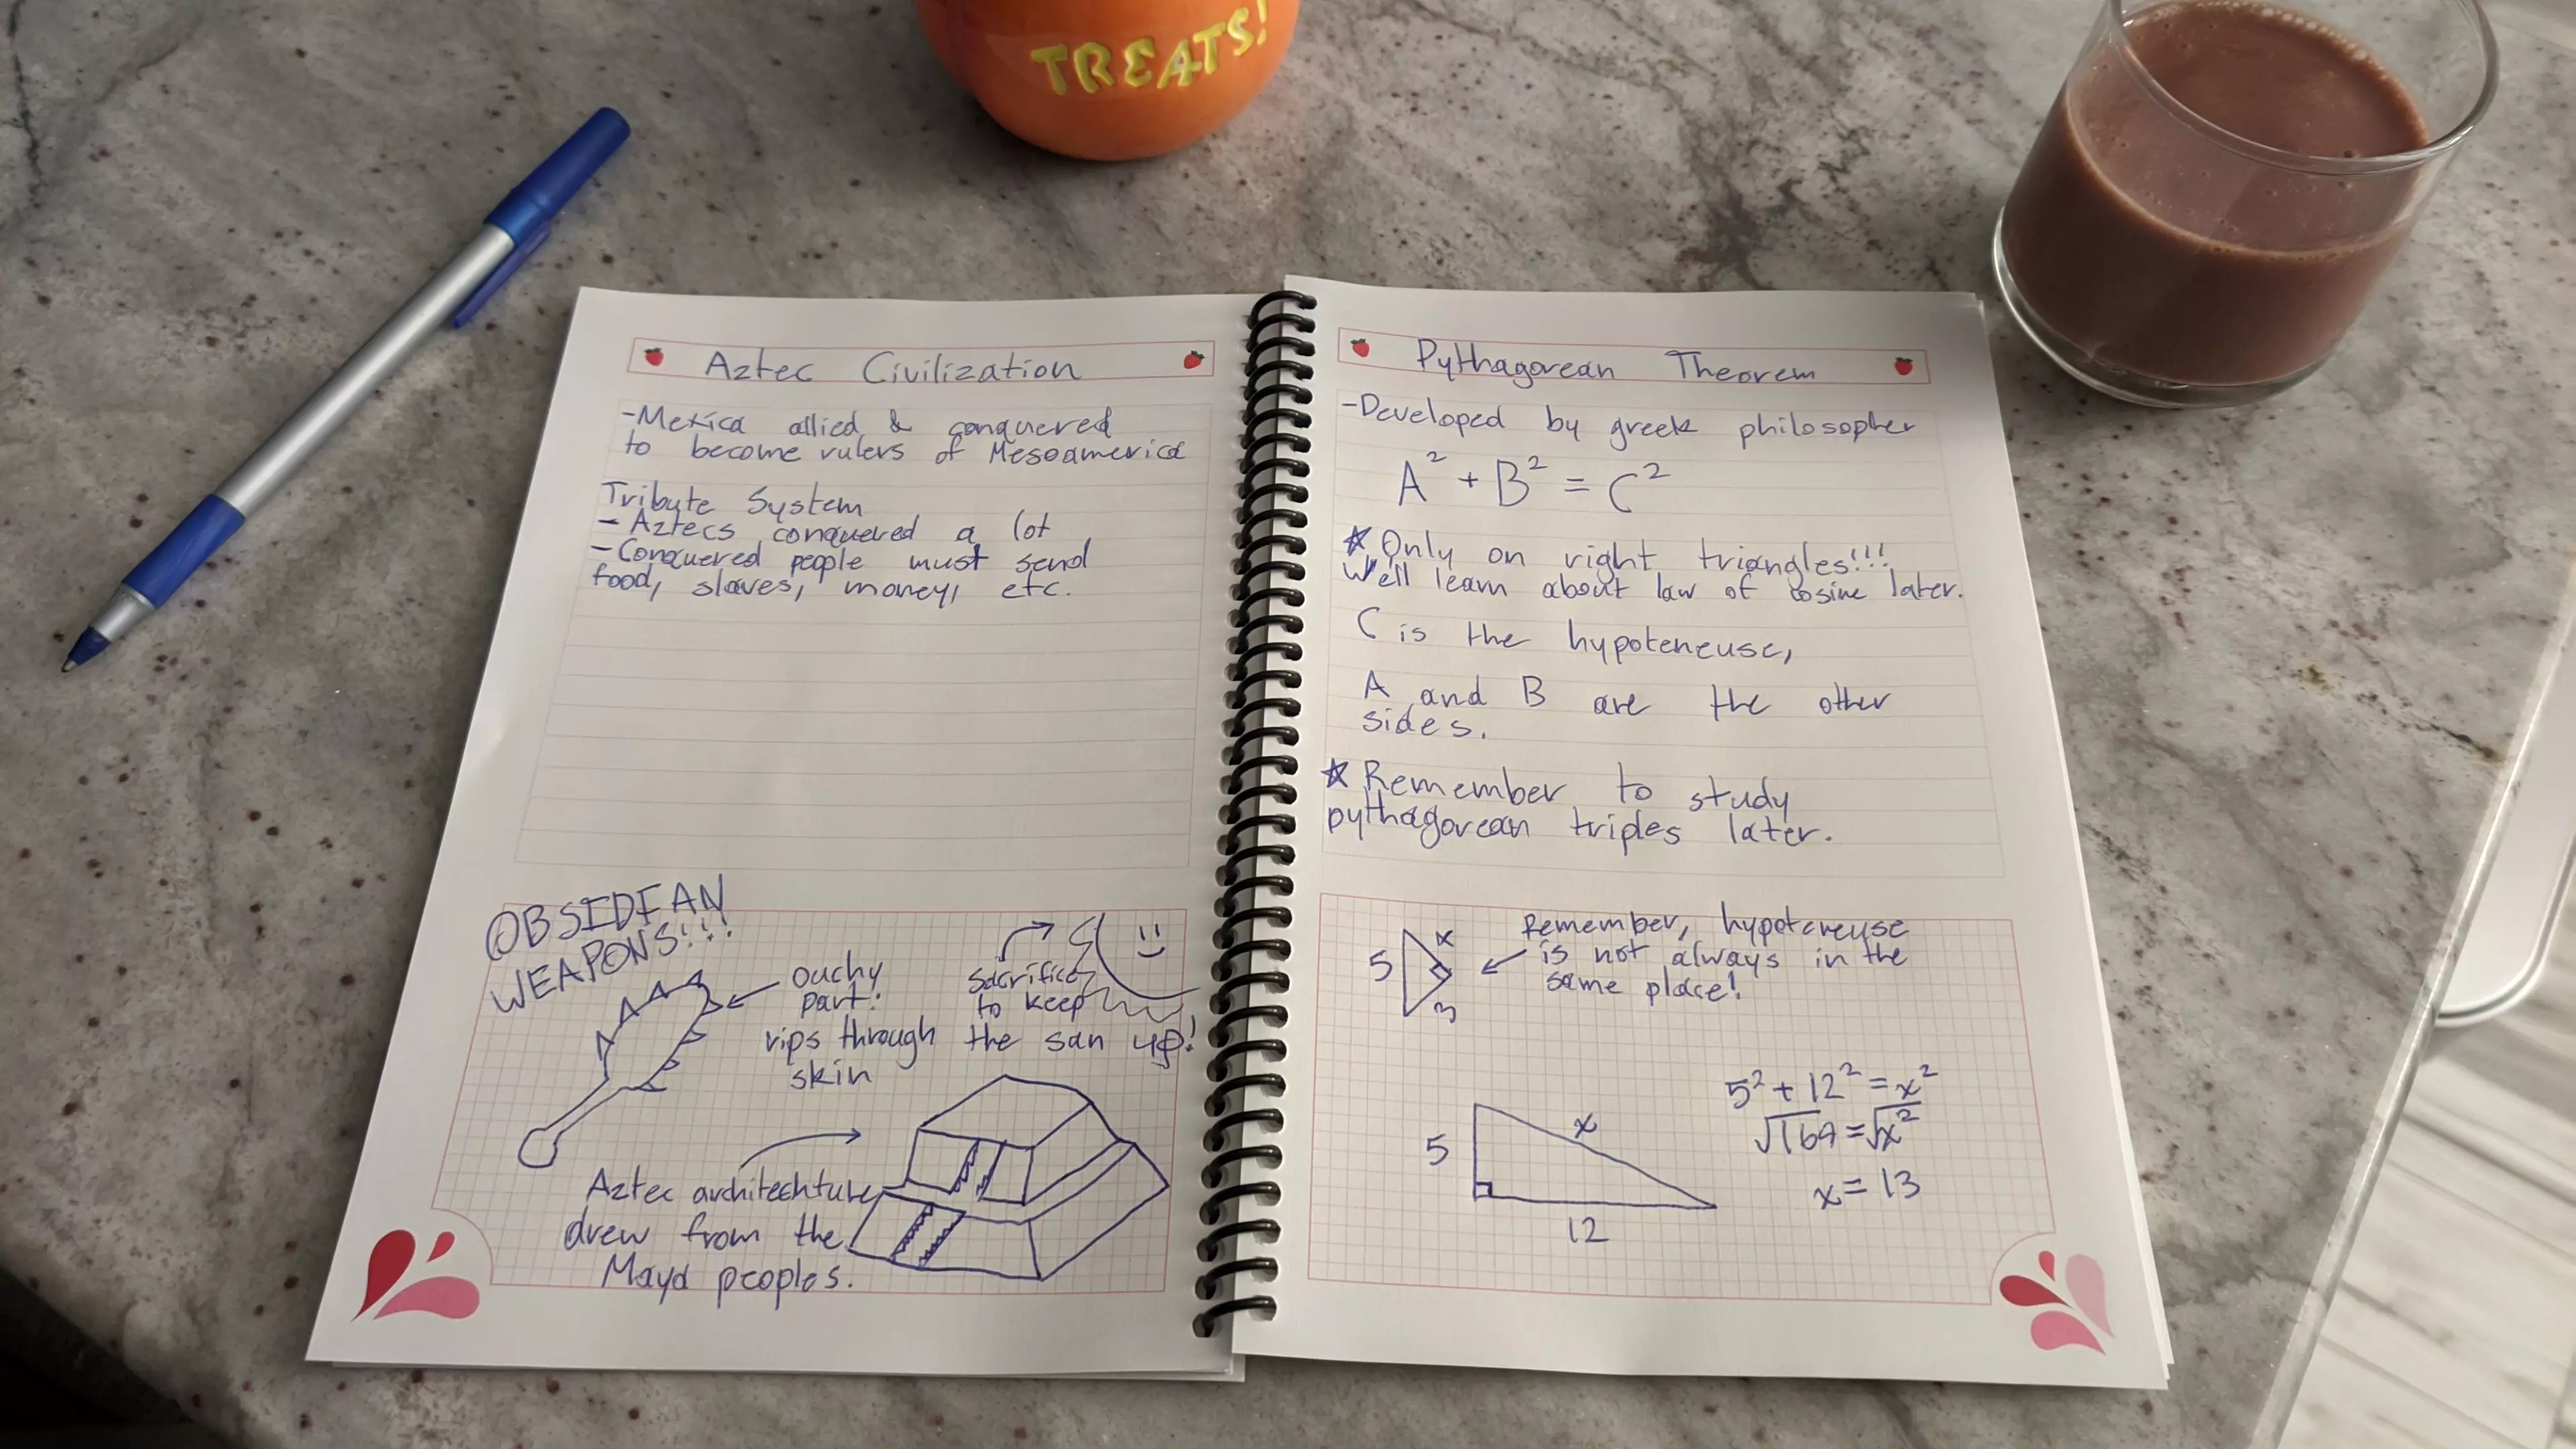 TREATS!
Aztec Civilization
-Mexica allied & conquered
to become rulers of Mesoamerica
Tribute System
- Aztecs conquered a lot
- Conquered people must send
food, slaves, money, etc.
OBSIDIAN
WEAPONS!!!
ouchy
part:
rips through
skin
sacrifice
to keep
the sun up!
Aztec architechture
drew from the
Maya peoples.
Pythagorean Theorem
-Developed by greek philosopher
A² + B² = C²
☆ Only on right triangles!!!
We'll learn about law of cosine later.
C is the hypoteneuse,
A and B are the other
sides.
☆ Remember to study
pythagorean triples later.
5 x 3
Remember, hypoteneuse
is not always in the
same place!
5 x 12
5² + 12² = x²
√169 = √x²
x = 13